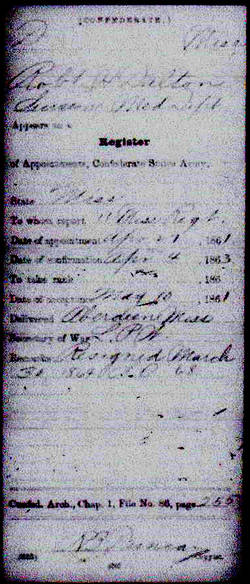 (CONFEDERATE.)
D Miss
Robt H Dalton
Surgeon Med Dept
Appears on a
Register
of Appointments, Confederate States Army.
State Miss
To whom report 11 Miss Regt
Date of appointment 1861
Date of confirmation Apr 4, 1863
To take rank , 186
Date of acceptance May 10, 1861
Delivered Aberdeen Miss
Secretary of War L.P.W
Remarks Resigned March
Confed. Arch., Chap. 1, File No. 86, page 255